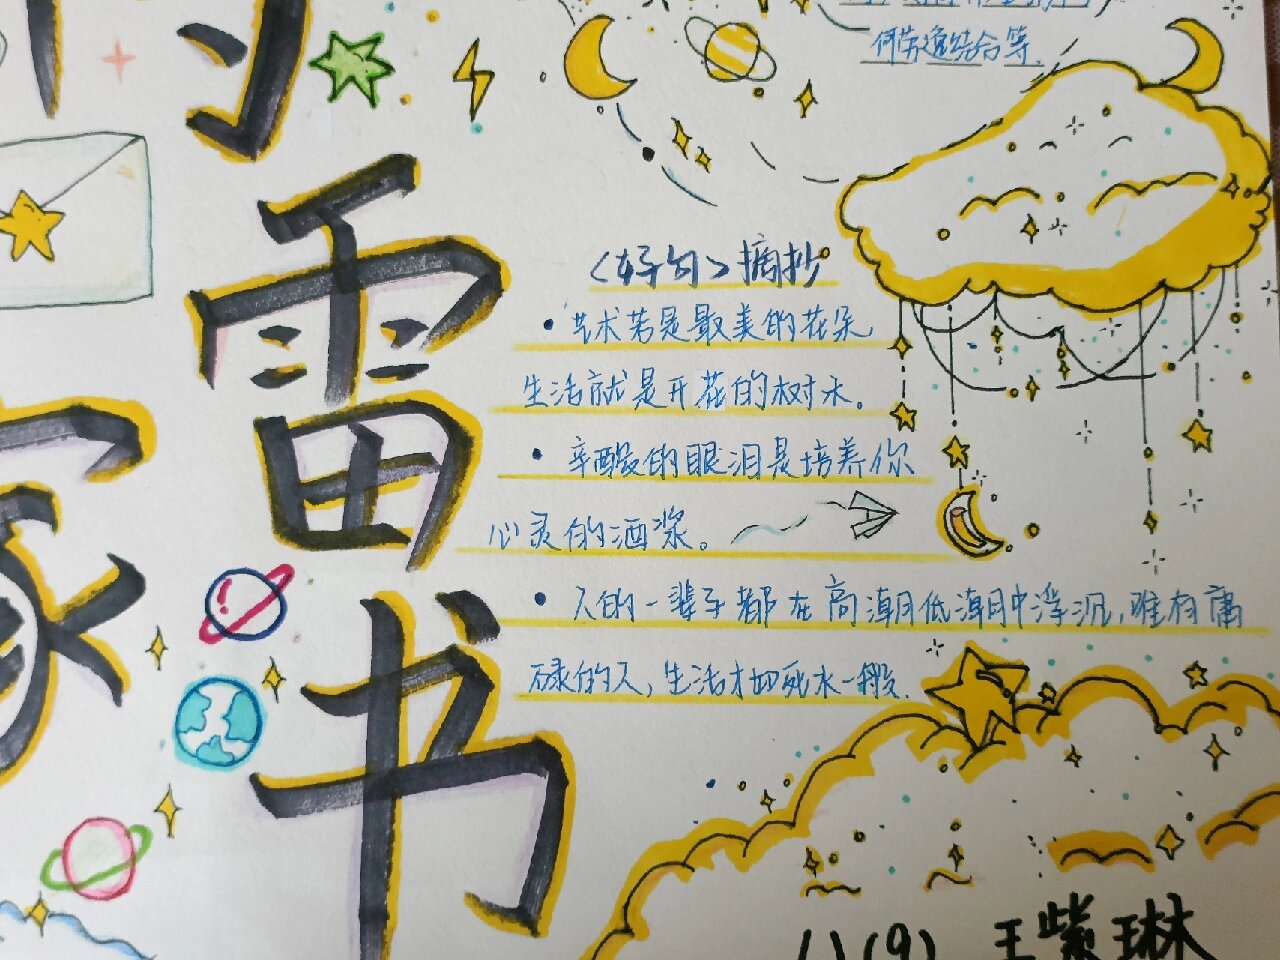 何劳逸结合等.
雷
书
家
《好句》摘抄
• 艺术若是最美的花朵
生活就是开花的树木。
• 辛酸的眼泪是培养你
心灵的酒浆。
• 人的一辈子都在高潮低潮中浮沉,唯有庸
碌的人,生活才如死水一般.
八(9) 王紫琳